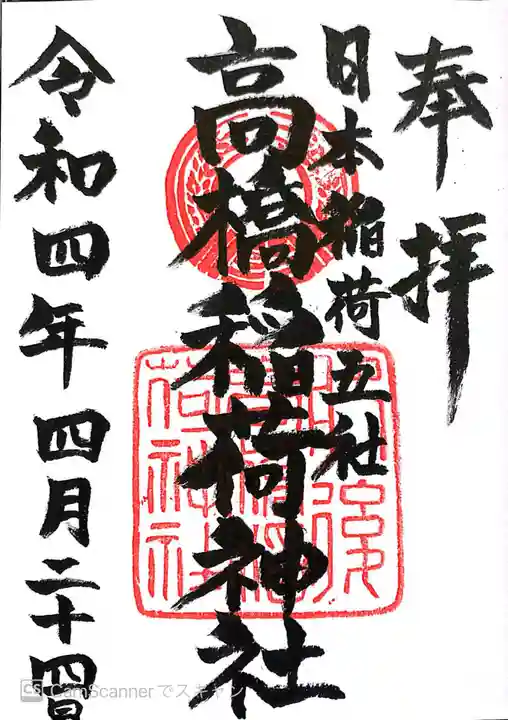 奉拝
日本稲荷五社
高橋稲荷神社
令和四年四月二十四日
CamScannerでスキャン